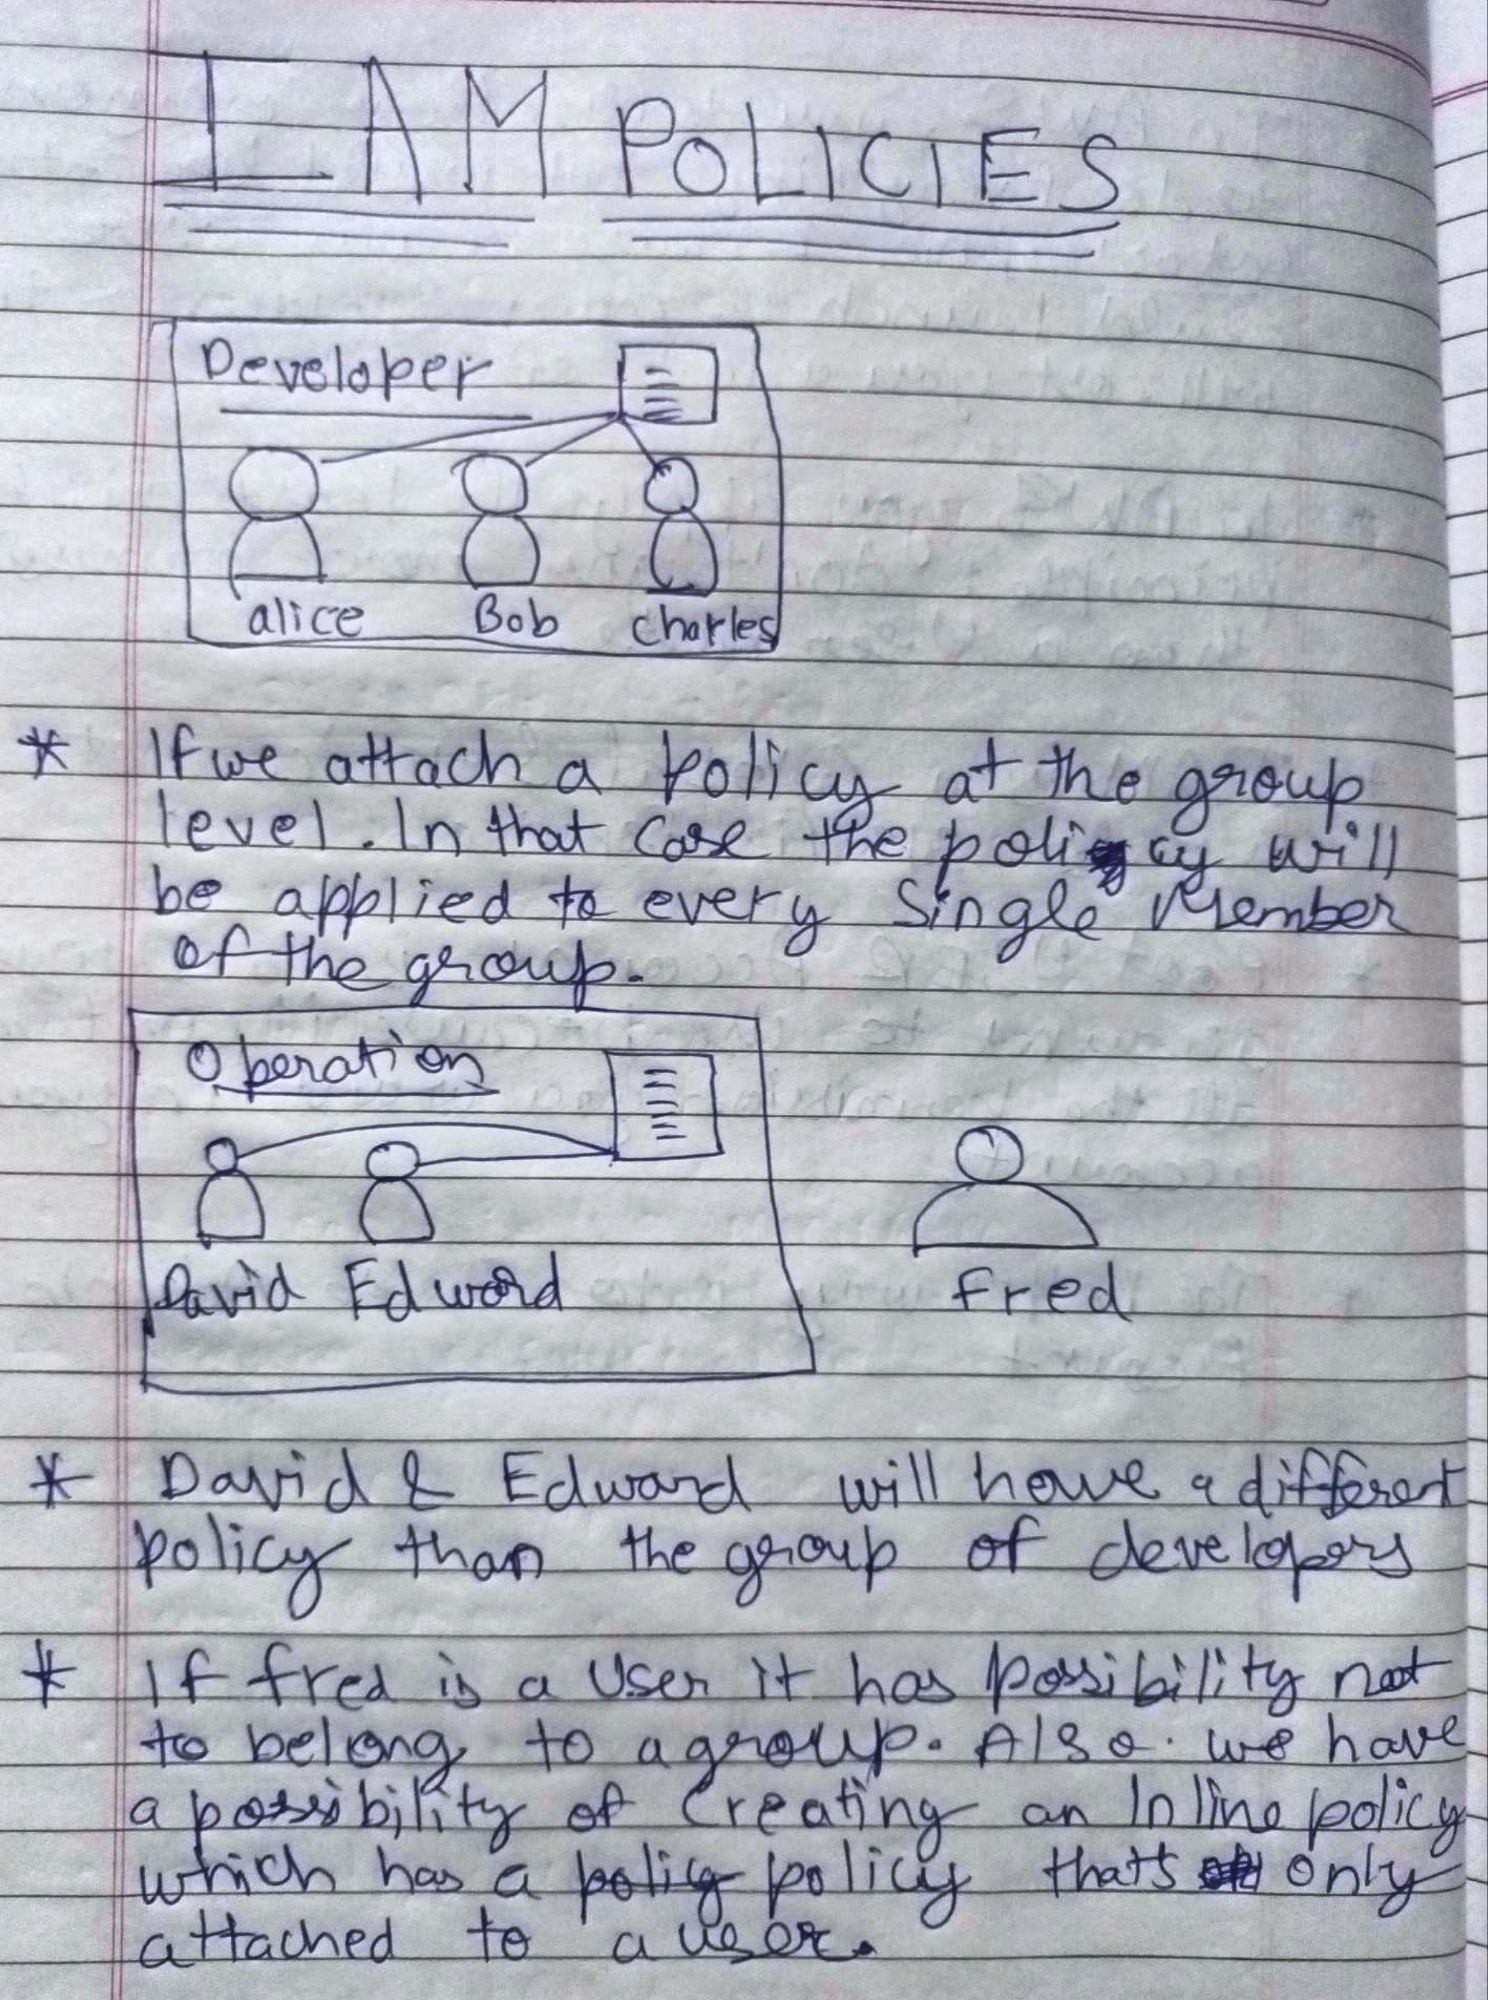 IAM POLICIES
Developer
alice Bob charles
* If we attach a policy at the group
level. In that case the policy will
be applied to every single Member
of the group.
Operation
David Edward
fred
* David & Edward will have a different
policy than the group of developers
* If fred is a User it has possibility not
to belong to a group. Also. we have
a possibility of Creating an Inline policy
which has a policy policy thats only
attached to a user.